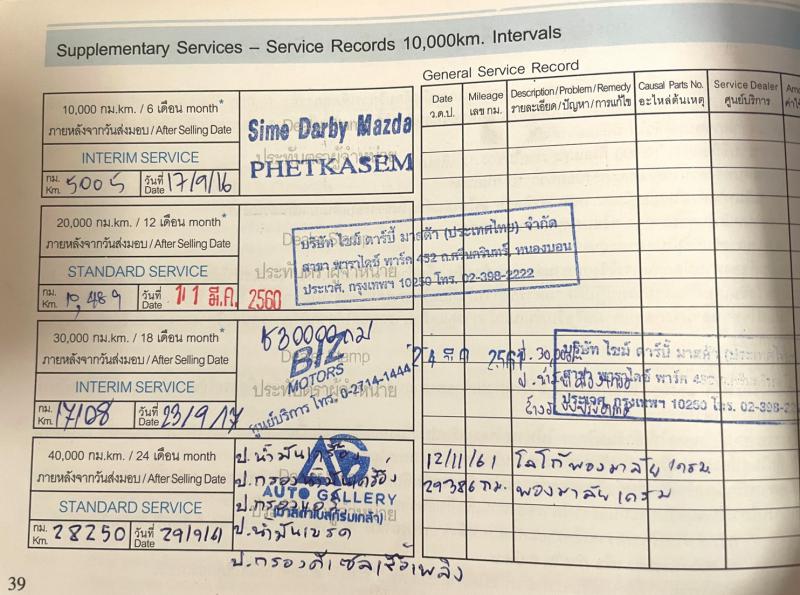 Supplementary Services – Service Records 10,000km. Intervals
10,000 กม.km. / 6 เดือน month*
ภายหลังจากวันส่งมอบ / After Selling Date
INTERIM SERVICE
กม. Km. 5005 วันที่ Date 17/9/16
Sime Darby Mazda
ประทับตราผู้จำหน่าย
PHETKASEM
20,000 กม.km. / 12 เดือน month*
ภายหลังจากวันส่งมอบ / After Selling Date
STANDARD SERVICE
กม. Km. 10,489 วันที่ Date 11 มี.ค. 2560
Dealer Stamp
ประทับตราผู้จำหน่าย
บริษัท ไซม์ ดาร์บี้ มาสด้า (ประเทศไทย) จำกัด
สาขา พาราไดซ์ พาร์ค 452 ถ.ศรีนครินทร์, หนองบอน
ประเวศ, กรุงเทพฯ 10250 โทร. 02-398-2222
30,000 กม.km. / 18 เดือน month*
ภายหลังจากวันส่งมอบ / After Selling Date
INTERIM SERVICE
กม. Km. 17108 วันที่ Date 23/9/17
30000 กม
Dealer Stamp
BIZ
MOTORS
ประทับตราผู้จำหน่าย
ศูนย์บริการ โทร. 0-2714-1444
40,000 กม.km. / 24 เดือน month*
ภายหลังจากวันส่งมอบ / After Selling Date
STANDARD SERVICE
กม. Km. 28250 วันที่ Date 29/9/61
AG
AUTO GALLERY
ป.น้ำมันเครื่อง
ป.กรองน้ำมันเครื่อง
ป.กรอง
ป.น้ำมันเบรค
ป.กรองดีเซลเชื้อเพลิง
General Service Record
Date ว.ด.ป.
Mileage เลข กม.
Description / Problem / Remedy รายละเอียด / ปัญหา / การแก้ไข
Causal Parts No. อะไหล่ต้นเหตุ
Service Dealer ศูนย์บริการ
24 2561 ป. 30,000
บริษัท ไซม์ ดาร์บี้ มาสด้า (ประเทศไทย)
สาขา พาราไดซ์ พาร์ค 452
ประเวศ, กรุงเทพฯ 10250 โทร. 02-398-222
12/11/61 โลโก้พวงมาลัย เครม
29386 กม. พวงมาลัยเครม
39